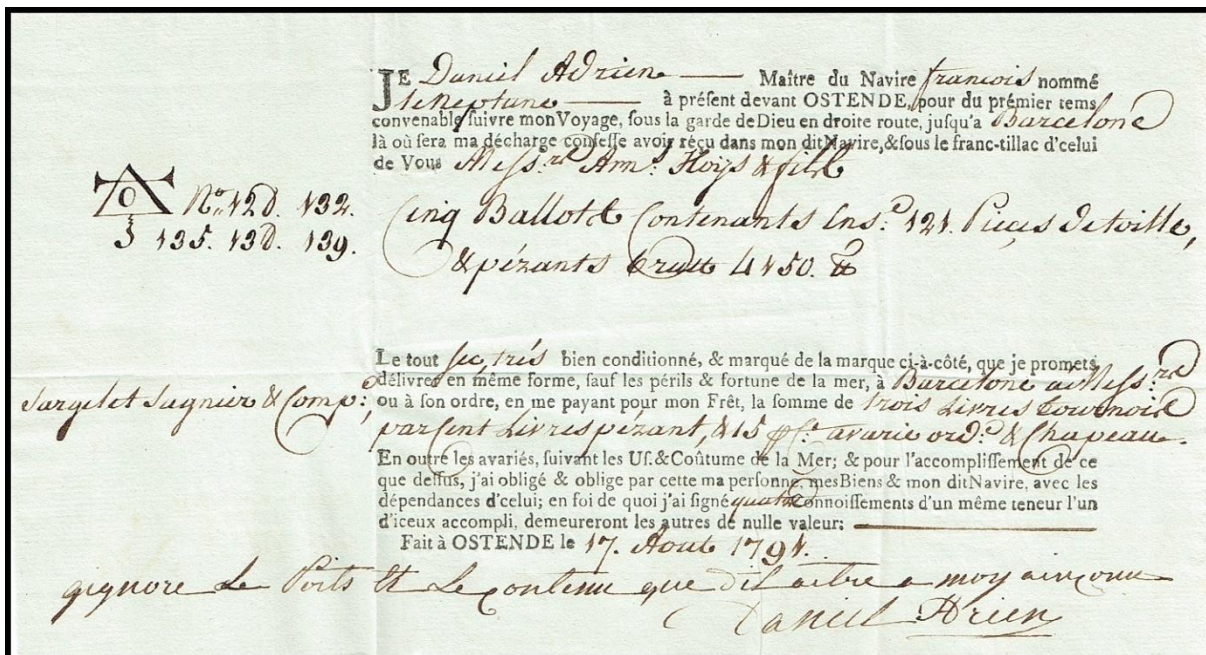 JE Daniel Adrien Maître du Navire francois nommé
le Neptune à préſent devant OSTENDE, pour du prémier tems
convenable ſuivre mon Voyage, ſous la garde de Dieu en droite route, juſqu'a Barcelone
là où ſera ma décharge confeſſe avoir réçu dans mon dit Navire, & ſous le franc-tillac d'celui
de Vous Meſs.rs & fils
N.o 128. 132.
5 135. 138. 139.
Cinq Ballots Contenants Ens. 121. Pieçes de toille,
& pézants brutt 4150. ℔
Le tout ſec, trés bien conditionné, & marqué de la marque ci-à-côté, que je promets
délivrer en même forme, ſauf les périls & fortune de la mer, à Barcelone à Meſs.rs
Sagnier & Comp.
ou à ſon ordre, en me payant pour mon Frêt, la ſomme de trois Livres tournois
par Cent Livres pézant, & 15 avarie ord. & Chapeau.
En outre les avariés, ſuivant les Uſ. & Coûtume de la Mer; & pour l'accompliſſement de ce
que deſſus, j'ai obligé & oblige par cette ma perſonne, mes Biens & mon dit Navire, avec les
dépendances d'celui; en foi de quoi j'ai ſigné quatre connoiſſements d'un même teneur l'un
d'iceux accompli, demeureront les autres de nulle valeur:
Fait à OSTENDE le 17. Aout 1791.
gignore Le Poits Et Le contenu que dit
Daniel Adrien